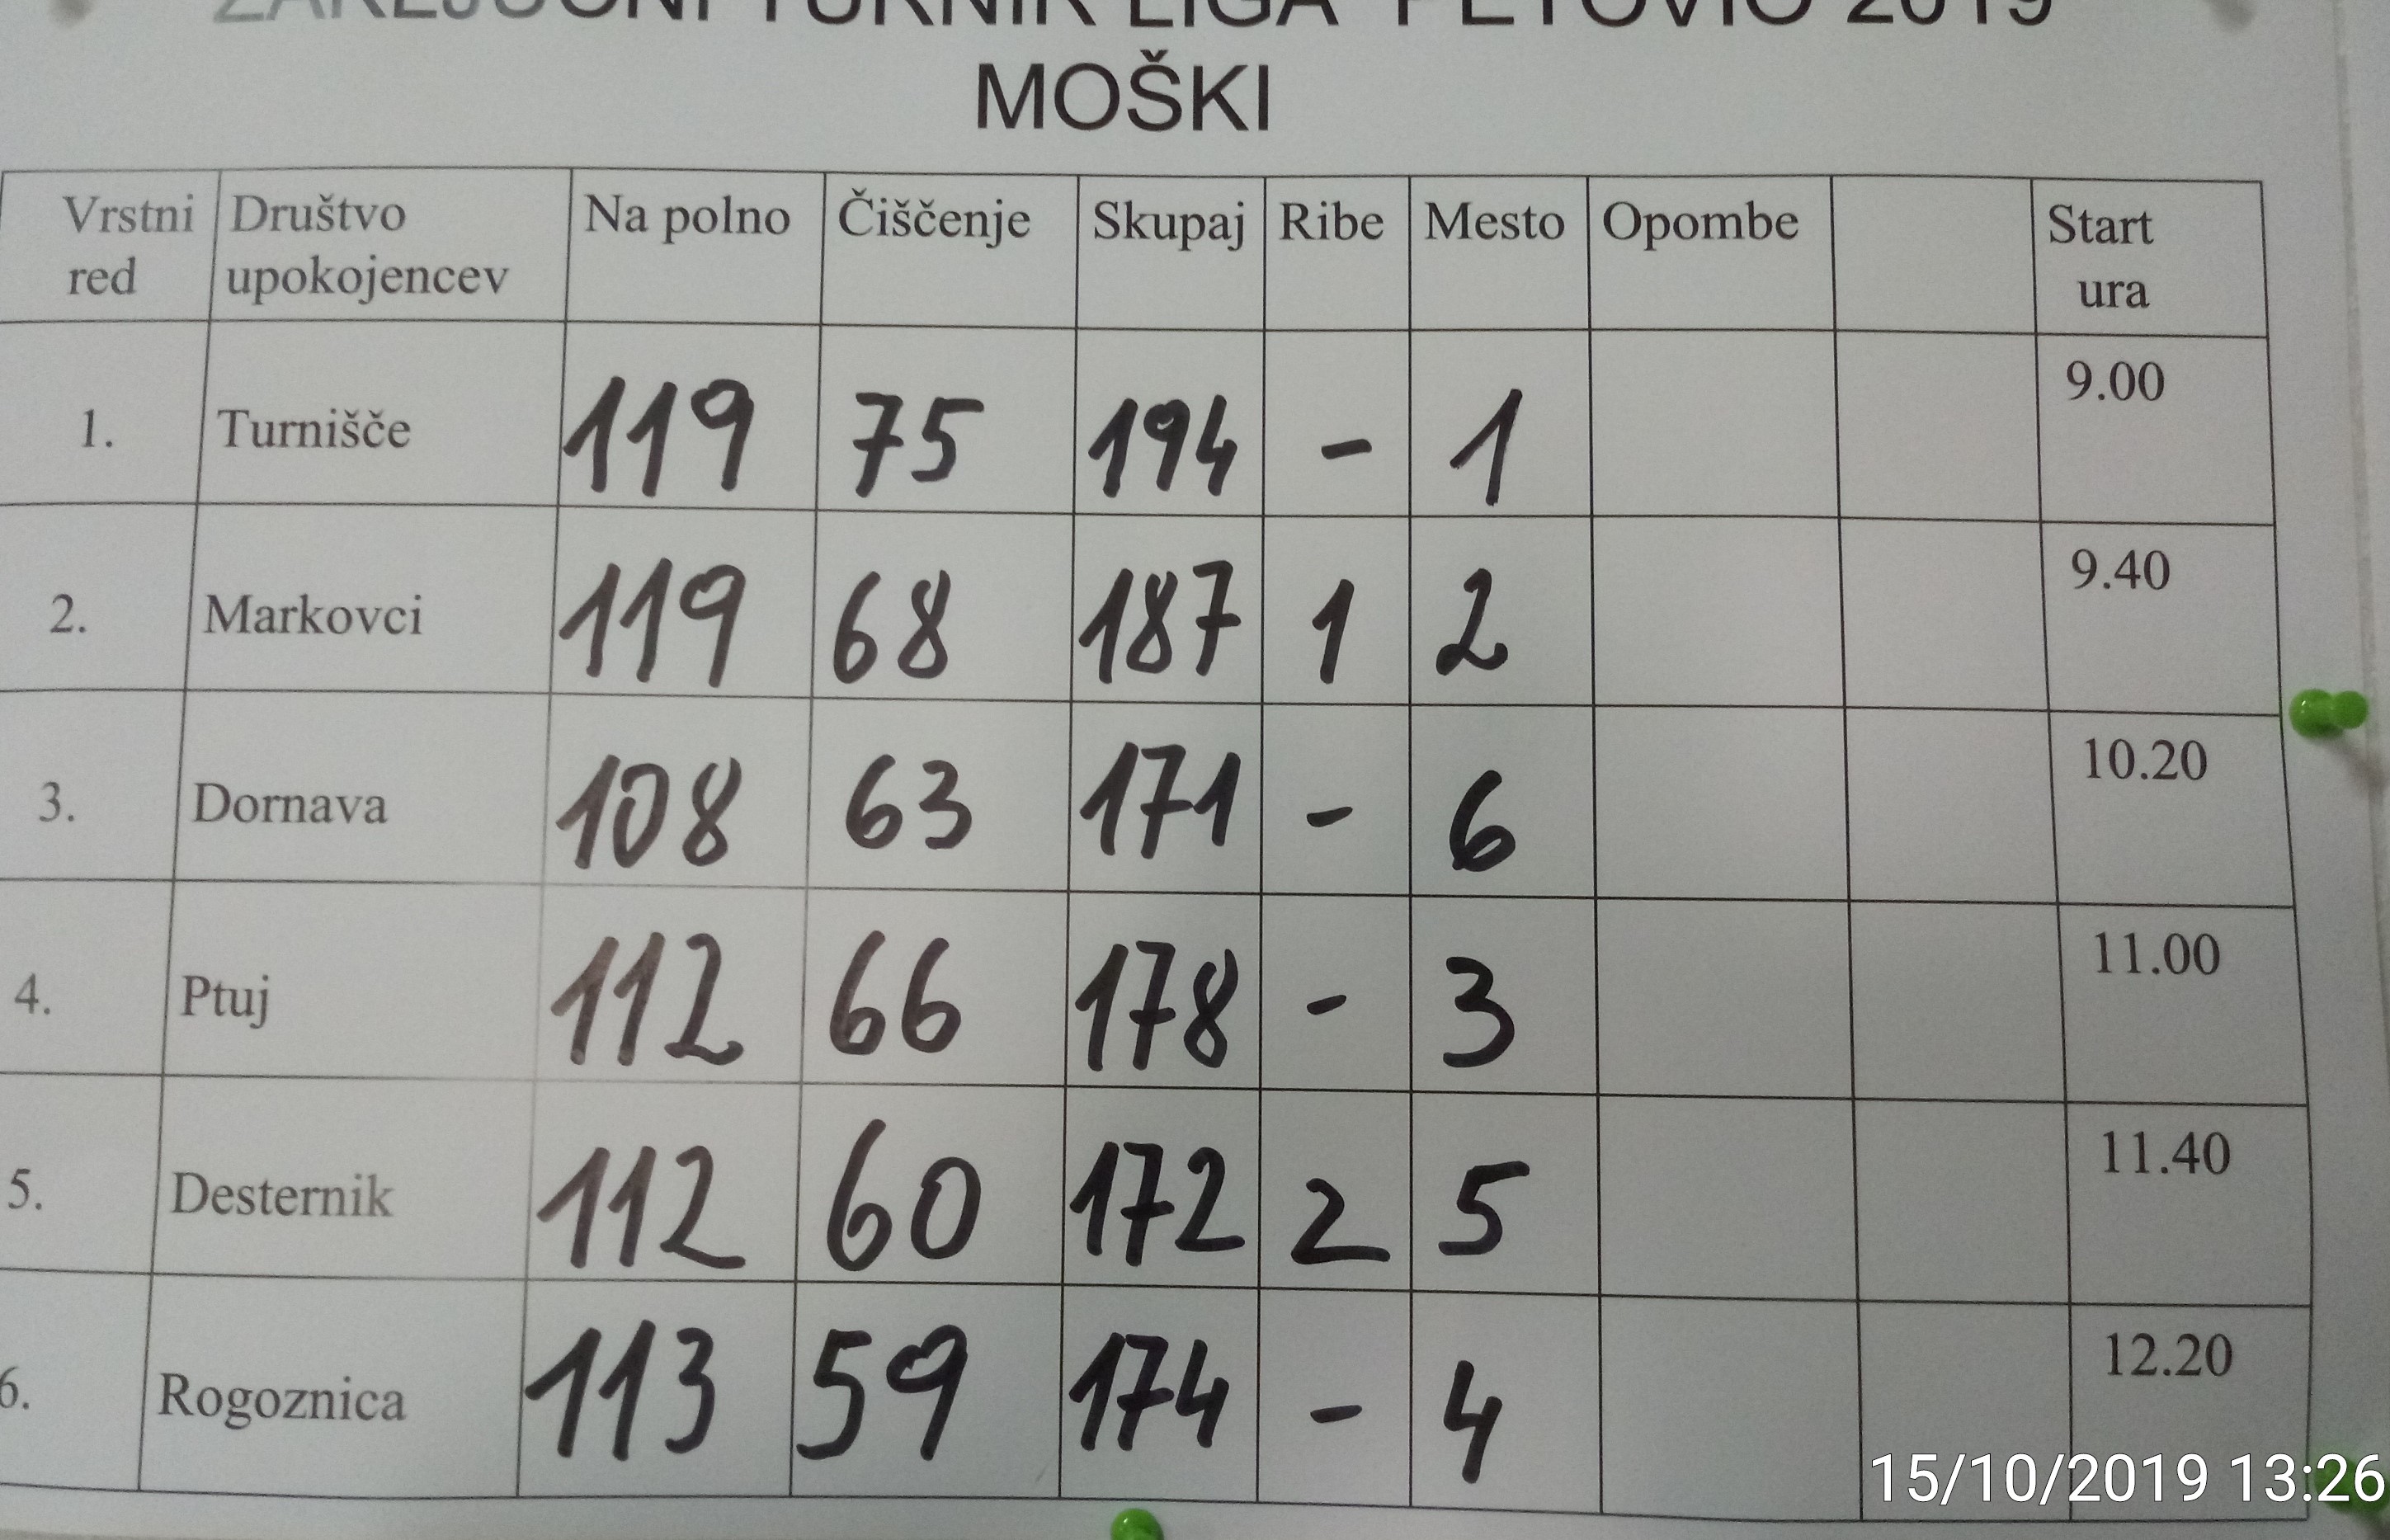 ZAKLJUČNI TURNIR LIGA PETOVIO 2019
MOŠKI
Vrstni red Društvo upokojencev Na polno Čiščenje Skupaj Ribe Mesto Opombe Start ura
1. Turnišče 119 75 194 - 1 9.00
2. Markovci 119 68 187 1 2 9.40
3. Dornava 108 63 171 - 6 10.20
4. Ptuj 112 66 178 - 3 11.00
5. Desternik 112 60 172 2 5 11.40
6. Rogoznica 113 59 174 - 4 12.20
15/10/2019 13:26